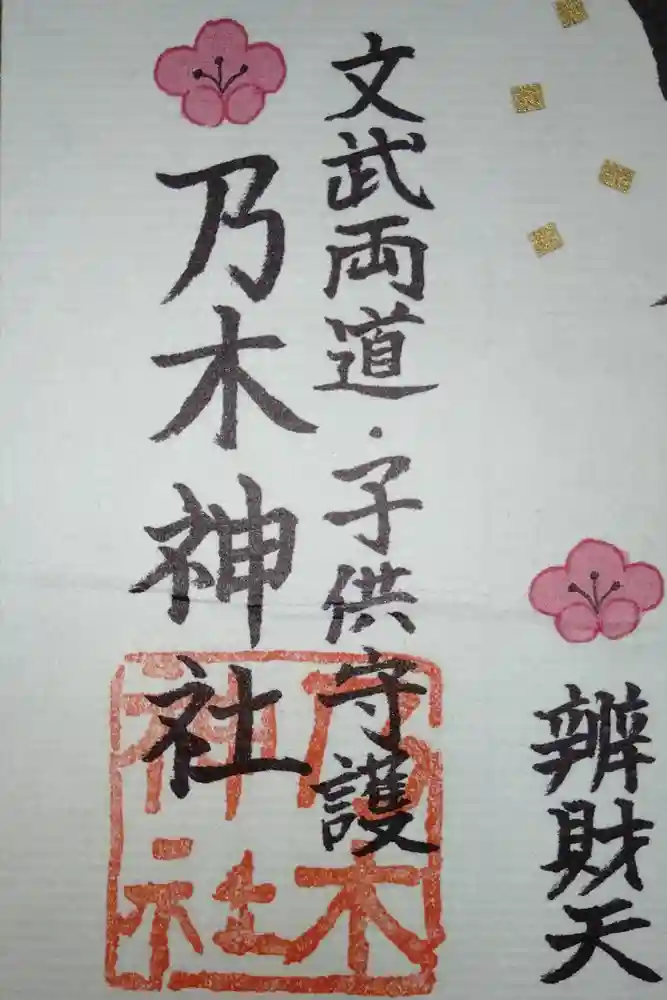 辨財天
文武両道・子供守護
乃木神社
乃木
神社